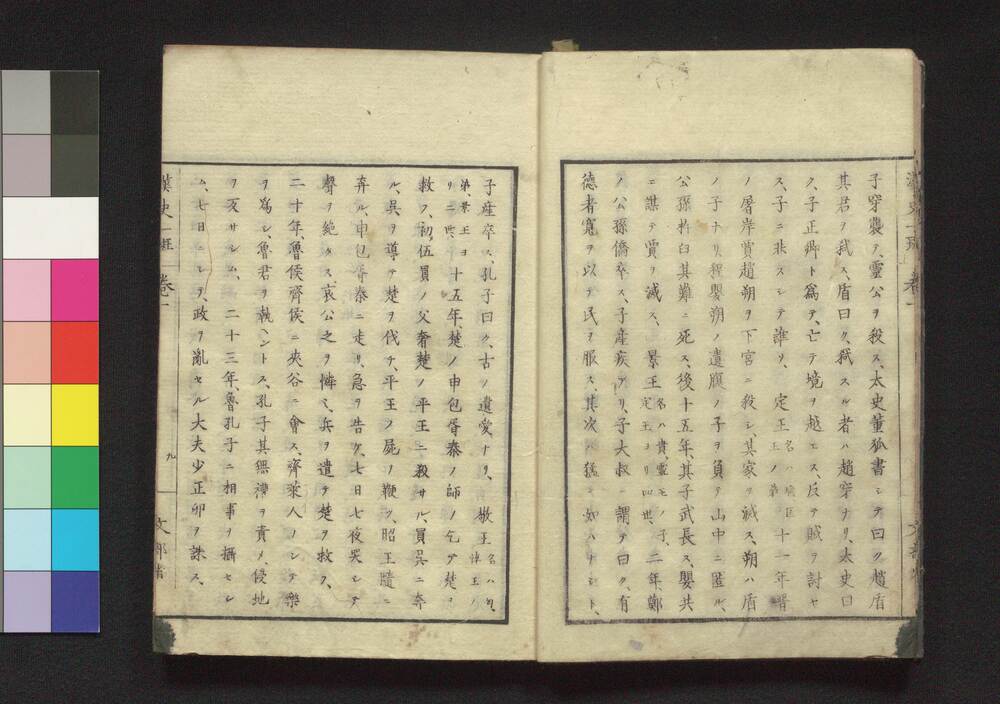 子穿襲テ、靈公ヲ殺ス、太史董狐書シテ曰ク趙盾
其君ヲ弑ス、盾曰ク、弑スル者ハ趙穿ナリ、太史曰
ク、子正卿ト爲テ、亡テ境ヲ越エス、反テ賊ヲ討セ
ス、子ニ非スシテ誰ソ、定王 名ハ 匡王ノ弟 十一年晋
ノ屠岸賈趙朔ヲ下宮ニ殺シ、其家ヲ滅ス、朔ハ盾
ノ子ナリ、程嬰朔ノ遺腹ノ子ヲ負テ山中ニ匿ル、
公孫杵臼其難ニ死ス、後十五年、其子武長ス、嬰共
ニ謀テ賈ヲ滅ス、景王 名ハ貴、靈王ノ子、定王ヨリ四世、 二年、鄭
ノ公孫僑卒ス、子産疾アリ、子大叔ニ謂テ曰ク、有
德者寬ヲ以テ民ヲ服ス其次ハ猛ニ如ハナシト、
子産卒ス、孔子曰ク、古ノ遺愛ナリ、敬王 名ハ匄、悼王ノ
弟、景王ヨリ二世 十五年、楚ノ申包胥秦ノ師ヲ乞テ楚ヲ
救フ、初伍員ノ父奢楚ノ平王ニ殺サル、員呉ニ奔
ル、呉ヲ導テ楚ヲ伐チ、平王ノ屍ヲ鞭ツ、昭王隨ニ
奔ル、申包胥秦ニ走リ、急ヲ告ク、七日七夜哭シテ
聲ヲ絶タス、哀公之ヲ憐ミ、兵ヲ遣テ楚ヲ救フ、
二十年、魯侯齊侯ニ夾谷ニ會ス、齊萊人ヲシテ樂
ヲ爲シ、魯君ヲ執ヘントス、孔子其無禮ヲ責メ、侵地
ヲ反サシム、二十三年、魯孔子ニ相事ヲ攝セシ
ム、七日ニシテ、政ヲ亂セル大夫少正卯ヲ誅ス、
漢史一班 卷一
九
文部省